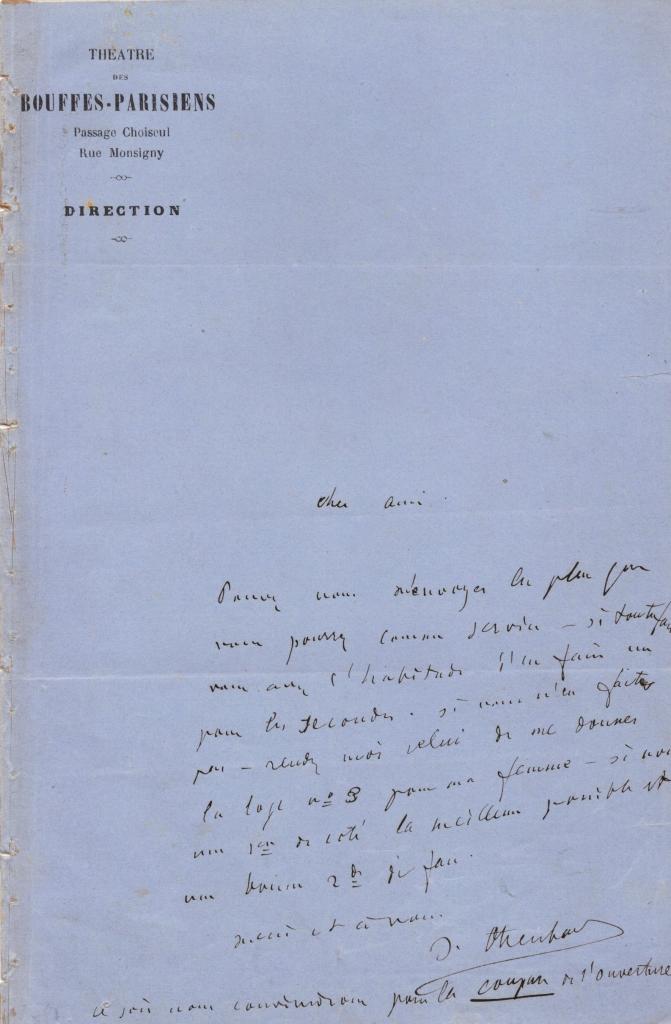 THEATRE
DES
BOUFFES-PARISIENS
Passage Choiseul
Rue Monsigny
DIRECTION
cher ami.
Pouvez vous m'envoyer le plus que
vous pourrez comme service – si toutefois
vous avez l'habitude d'en faire un
pour les secondes. si vous n'en faites
pas – rendez moi celui de me donner
la loge nº 3 pour ma femme – si non
une 1ère de coté la meilleure possible et
une bonne 2de de face.
merci et à vous.
J. Offenbach
ce soir nous conviendrons pour la coupure de l'ouverture